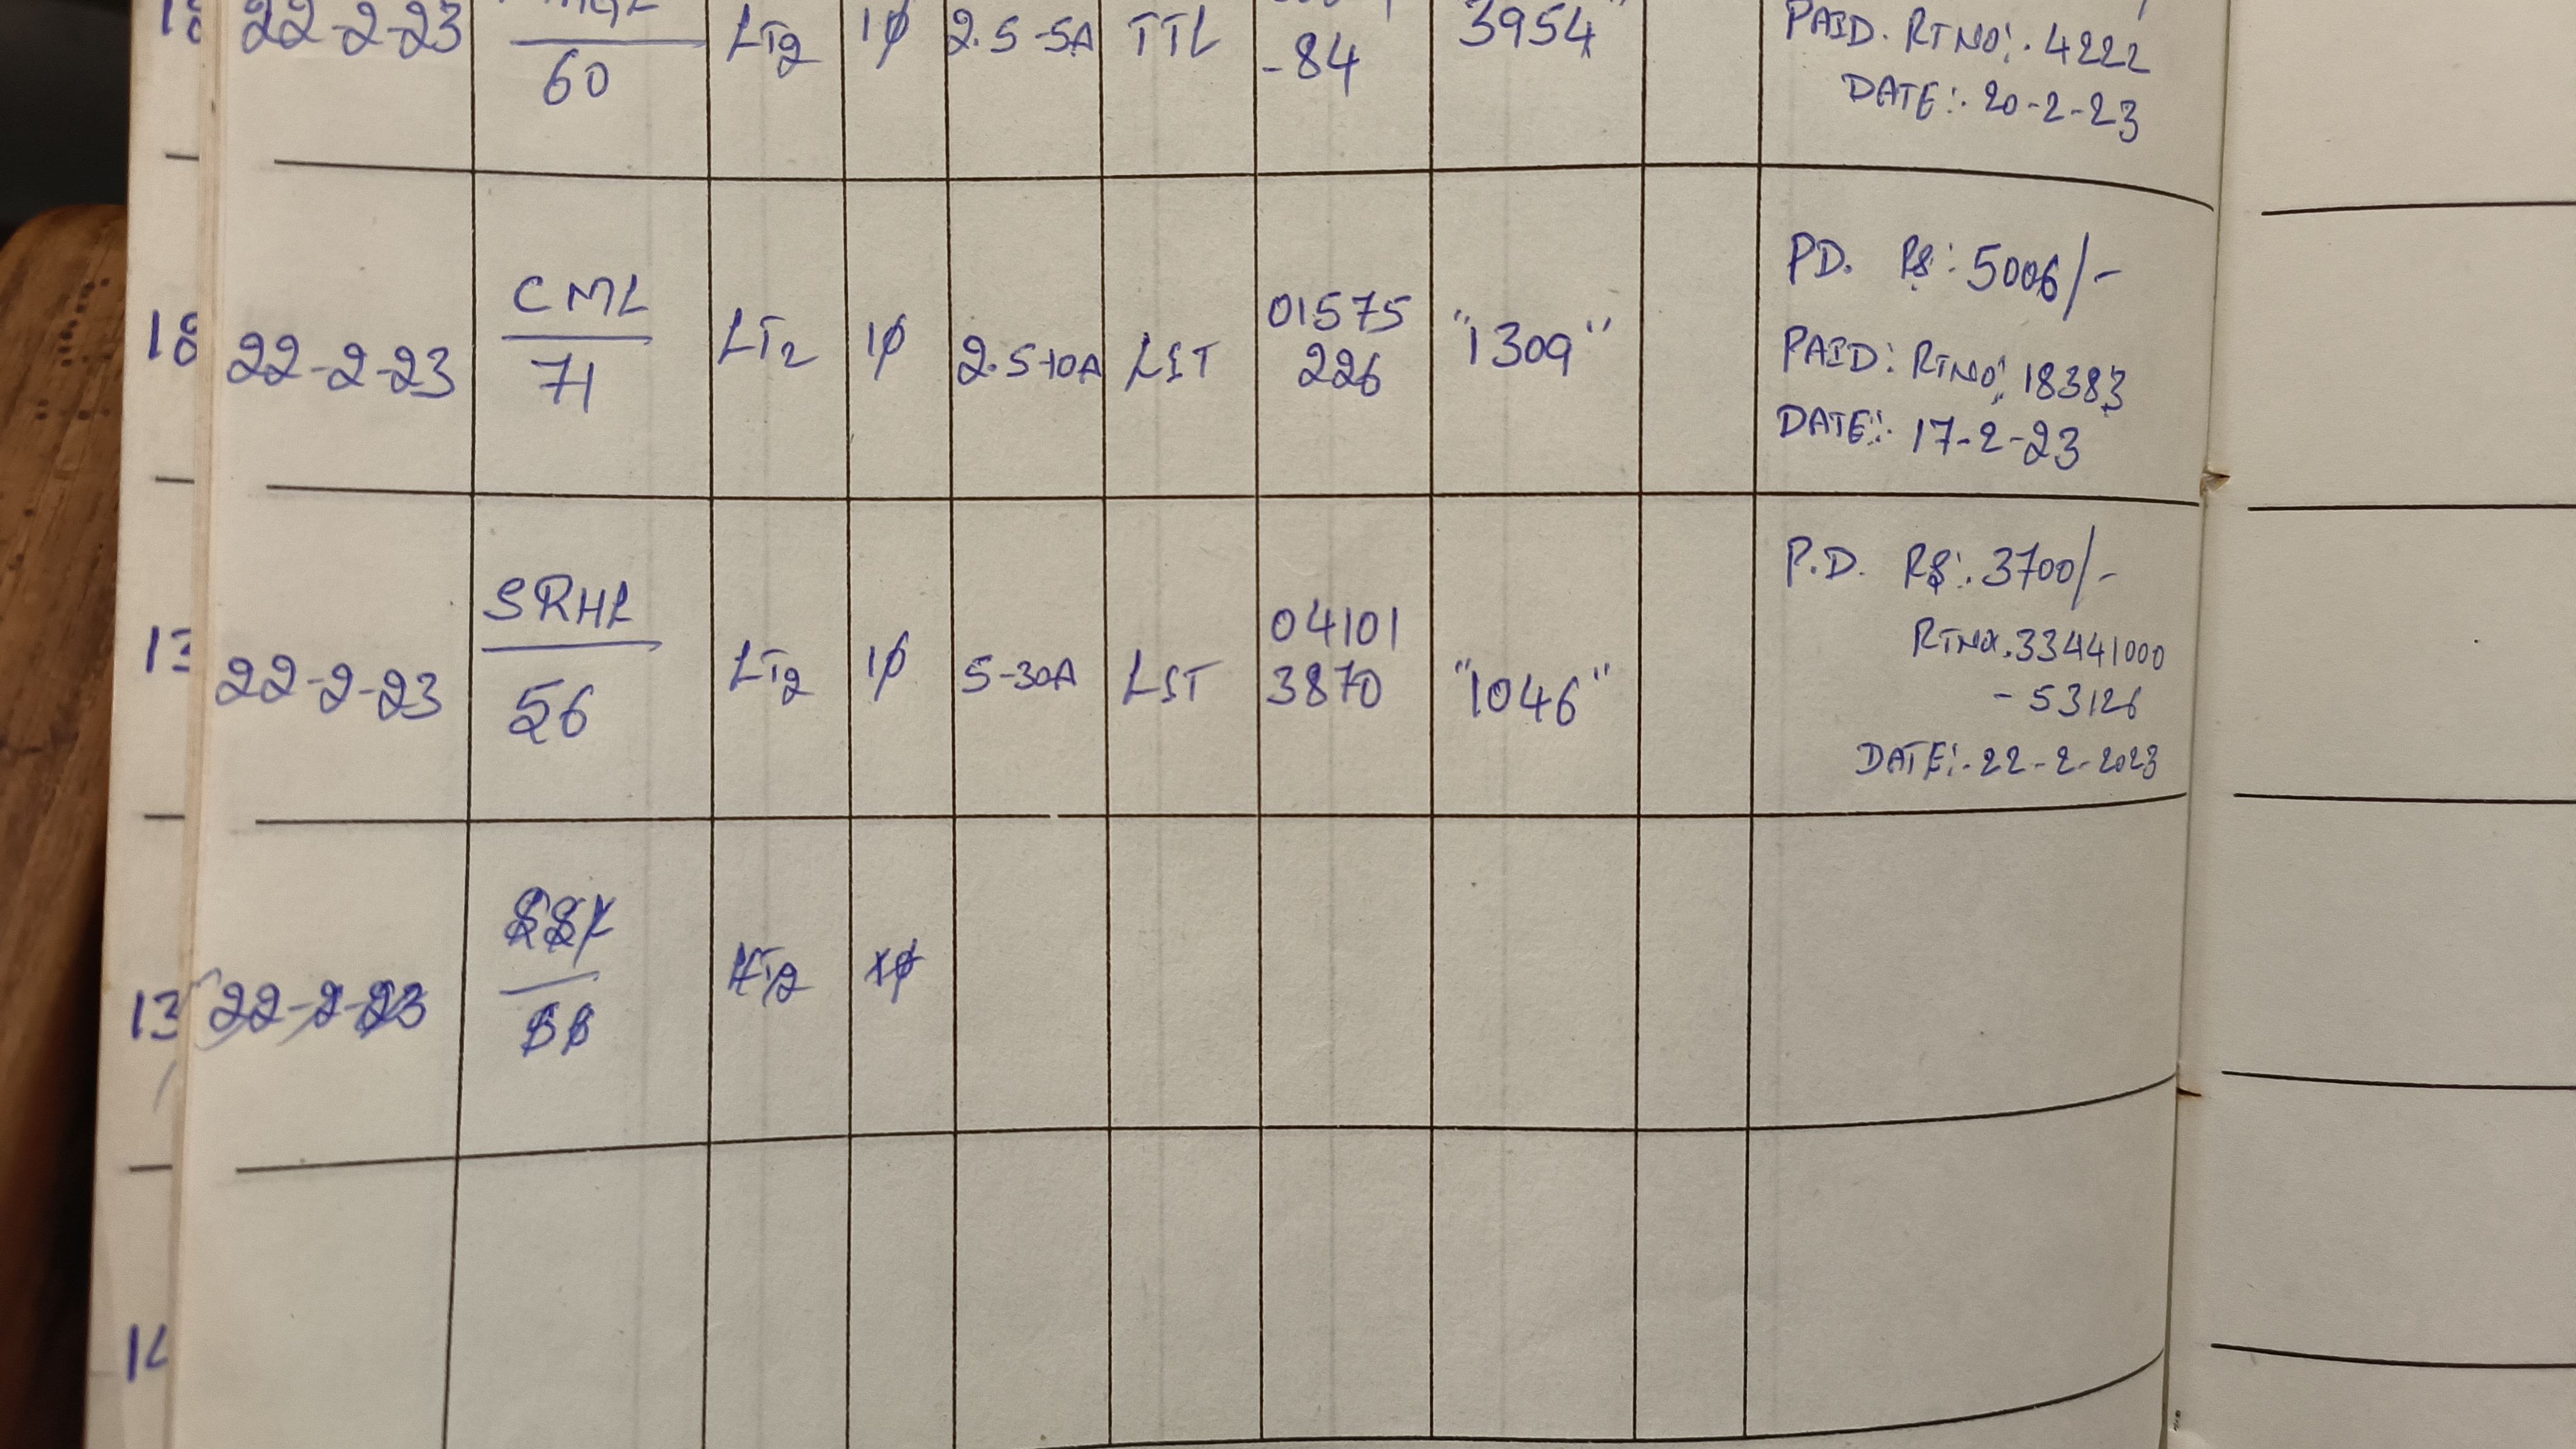 22-2-23 60 LT2 1φ 2.5-5A TTL -84 3954" PAID. RTNO:. 4222
DATE:. 20-2-23
22-2-23 CML 71 LT2 1φ 2.5-10A LST 01575 226 "1309" PD. RS: 5006/-
PAID: RTNO: 18383
DATE:. 17-2-23
22-2-23 SRHL 56 LT2 1φ 5-30A LST 04101 3870 "1046" P.D. RS:. 3700/-
RTNO.33441000
-53126
DATE:.22-2-2023
22-2-23 LT2 1φ